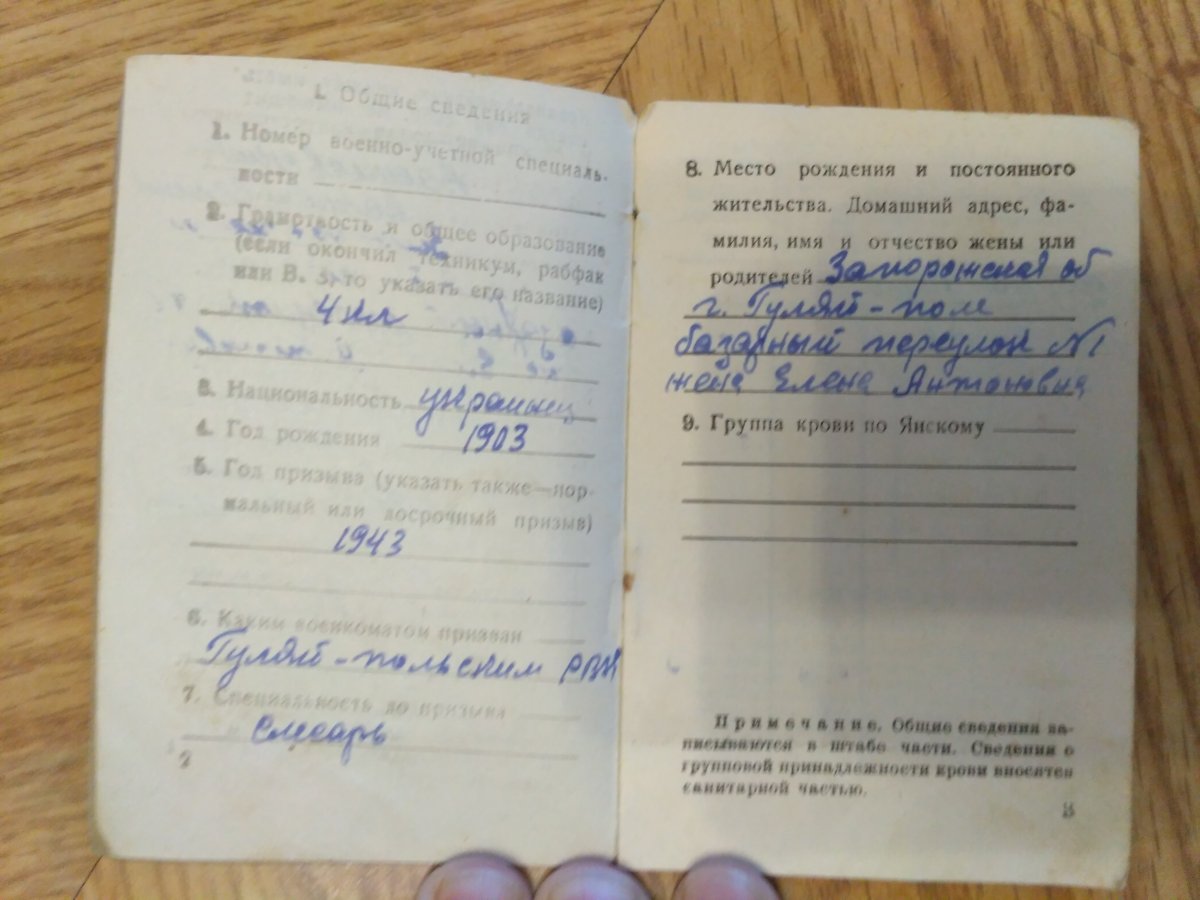 I. Общие сведения
1. Номер военно-учетной специаль-
ности
2. Грамотность и общее образование
(если окончил техникум, рабфак
или В. З. то указать его название)
4 кл
3. Национальность украинец
4. Год рождения 1903
5. Год призыва (указать также—нор-
мальный или досрочный призыв)
1943
6. Каким военкоматом призван
Гуляй-польским РВК
7. Специальность до призыва
слесарь
2
8. Место рождения и постоянного
жительства. Домашний адрес, фа-
милия, имя и отчество жены или
родителей Запорожская об
г. Гуляй-поле
базарный переулок №1
жена Елена Антоновна
9. Группа крови по Янскому
Примечание. Общие сведения за-
писываются в штабе части. Сведения о
групповой принадлежности крови вносятся
санитарной частью.
3